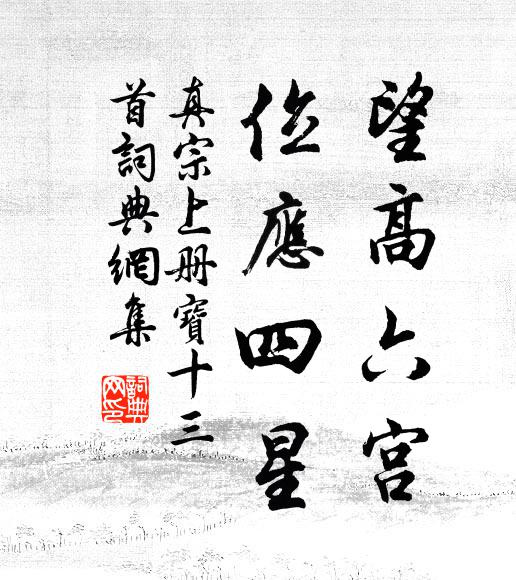 望高六宫
位應四星
真宗上册寶十三
首詞典網集
詞典网印